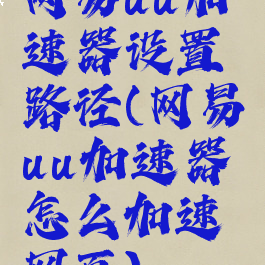 网易uu加
速器设置
路径(网易
uu加速器
怎么加速
网页)